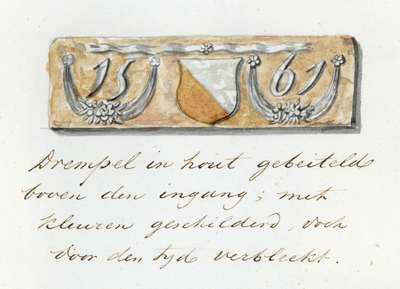 15 61
Drempel in hout gebeiteld
boven den ingang; met
kleuren geschilderd, doch
door den tyd verbleekt.